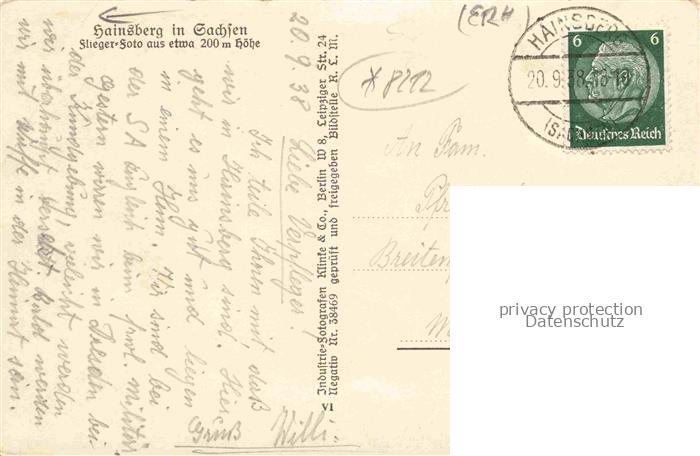 Hainsberg in Sachsen
Flieger-Foto aus etwa 200 m Höhe
20.9.38
Liebe Verpfleger!
Ich teile Ihnen mit daß
wir in Hainsberg sind. Hier
geht es uns gut und liegen
in einem Heim. Wir sind bei
der SA
gestern waren wir in Dresden bei
der Kundgebung! vieleicht werden
wir überhaupt versetzt. Bald werden
wir mit in der Heimat sein.
Gruß Willi.
Industrie-Fotografen Klinke & Co., Berlin W 8, Leipziger Str. 24
Negativ Nr. 38469 geprüft und freigegeben Bildstelle R. L. M.
VI
(ERH)
*8212
HAINSBERG
20.9.38.18-19
(SA
6 6
Deutsches Reich
An Fam.
Pf
Breiten
W
privacy protection
Datenschutz